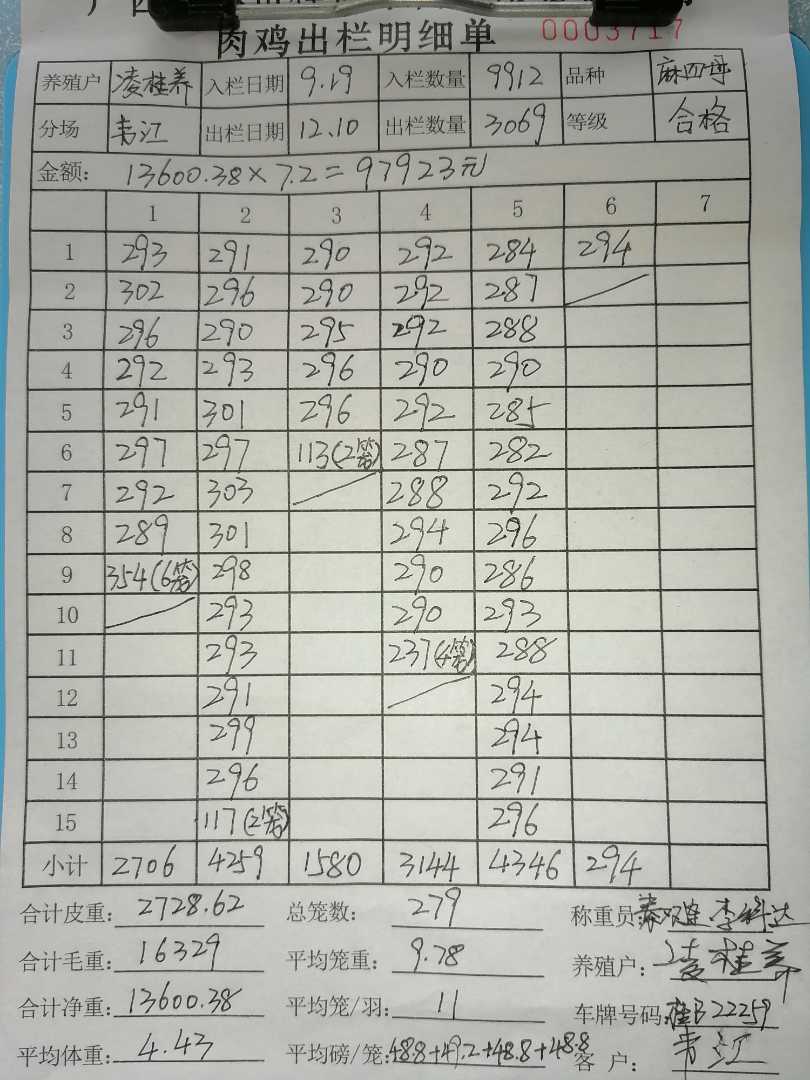 肉鸡出栏明细单 0003717
养殖户 凌桂养 入栏日期 9.19 入栏数量 9912 品种 麻四号
分场 韦江 出栏日期 12.10 出栏数量 3069 等级 合格
金额: 13600.38×7.2=97923元
1 2 3 4 5 6 7
1 293 291 290 292 284 294
2 302 296 290 292 287
3 296 290 295 292 288
4 292 293 296 290 290
5 291 301 296 292 285
6 297 297 113(2笼) 287 282
7 292 303 288 292
8 289 301 294 296
9 354(6笼) 298 290 286
10 293 290 293
11 293 237(4笼) 288
12 291 294
13 299 294
14 296 291
15 117(2笼) 296
小计 2706 4259 1580 3144 4346 294
合计皮重: 2728.62 总笼数: 279 称重员: 李科达
合计毛重: 16329 平均笼重: 9.78 养殖户: 凌桂养
合计净重: 13600.38 平均笼/羽: 11 车牌号码: 桂B22259
平均体重: 4.43 平均磅/笼: 48.8+49.2+48.8+48.8 客户: 韦江